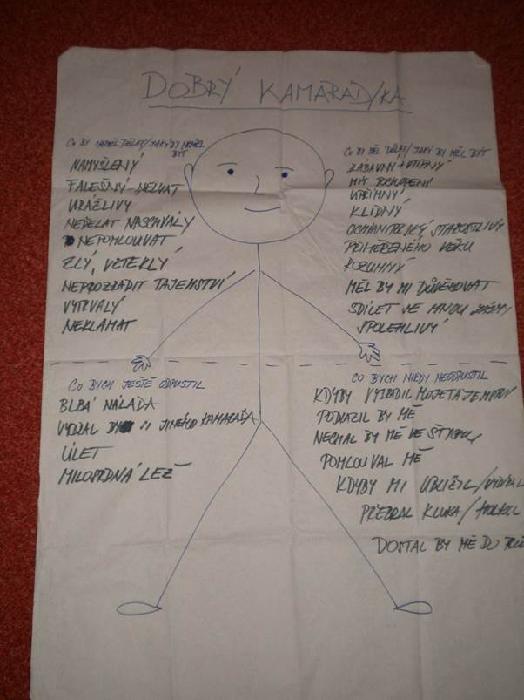 DOBRÝ KAMARÁD/KA
CO BY NEMĚL DĚLAT/JAKÝ BY NEMĚL
BÝT
NAMYŠLENÝ
FALEŠNÝ
URÁŽLIVÝ
NEDĚLAT NASCHVÁLY
NEPOMLOUVAT
ZLÝ, VZTEKLÝ
NEPROZRADIT TAJEMSTVÍ
VYTRVALÝ
NEKLAMAT
CO BY MĚL DĚLAT/JAKÝ BY MĚL BÝT
ZÁBAVNÝ
MÍT
UPŘÍMNÝ
KLIDNÝ
OCHRANITELSKÝ, STAROSTLIVÝ
VĚKU
ROZUMNÝ
MĚL BY MI DŮVĚŘOVAT
SDÍLET SE MNOU
SPOLEHLIVÝ
CO BYCH JEŠTĚ ODPUSTIL
BLBÁ NÁLADA
JINÉHO KAMARÁDA
ÚLET
MILOSRDNÁ LEŽ
CO BYCH NIKDY NEODPUSTIL
KDYBY TAJEMSTVÍ
PODRAZIL BY MĚ
NECHAL BY MĚ VE ŠTYCHU
POMLOUVAL MĚ
KDYBY MI UBLÍŽIL/
PŘEBRAL KLUKA/HOLKU
DOSTAL BY MĚ DO